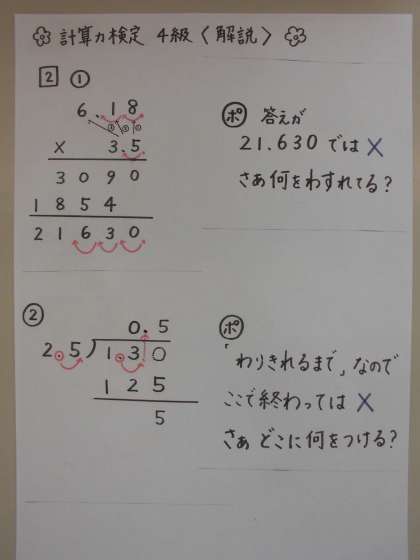 計算力検定 4級〈解説〉
2 ①
6.18
① ② ③
× 3.5
3090
1854
21630
ポ 答えが
21.630 では ×
さあ何をわすれてる?
②
0.5
2.5)1.30
125
5
ポ
「わりきれるまで」なので
ここで終わっては ×
さぁ どこに何をつける?